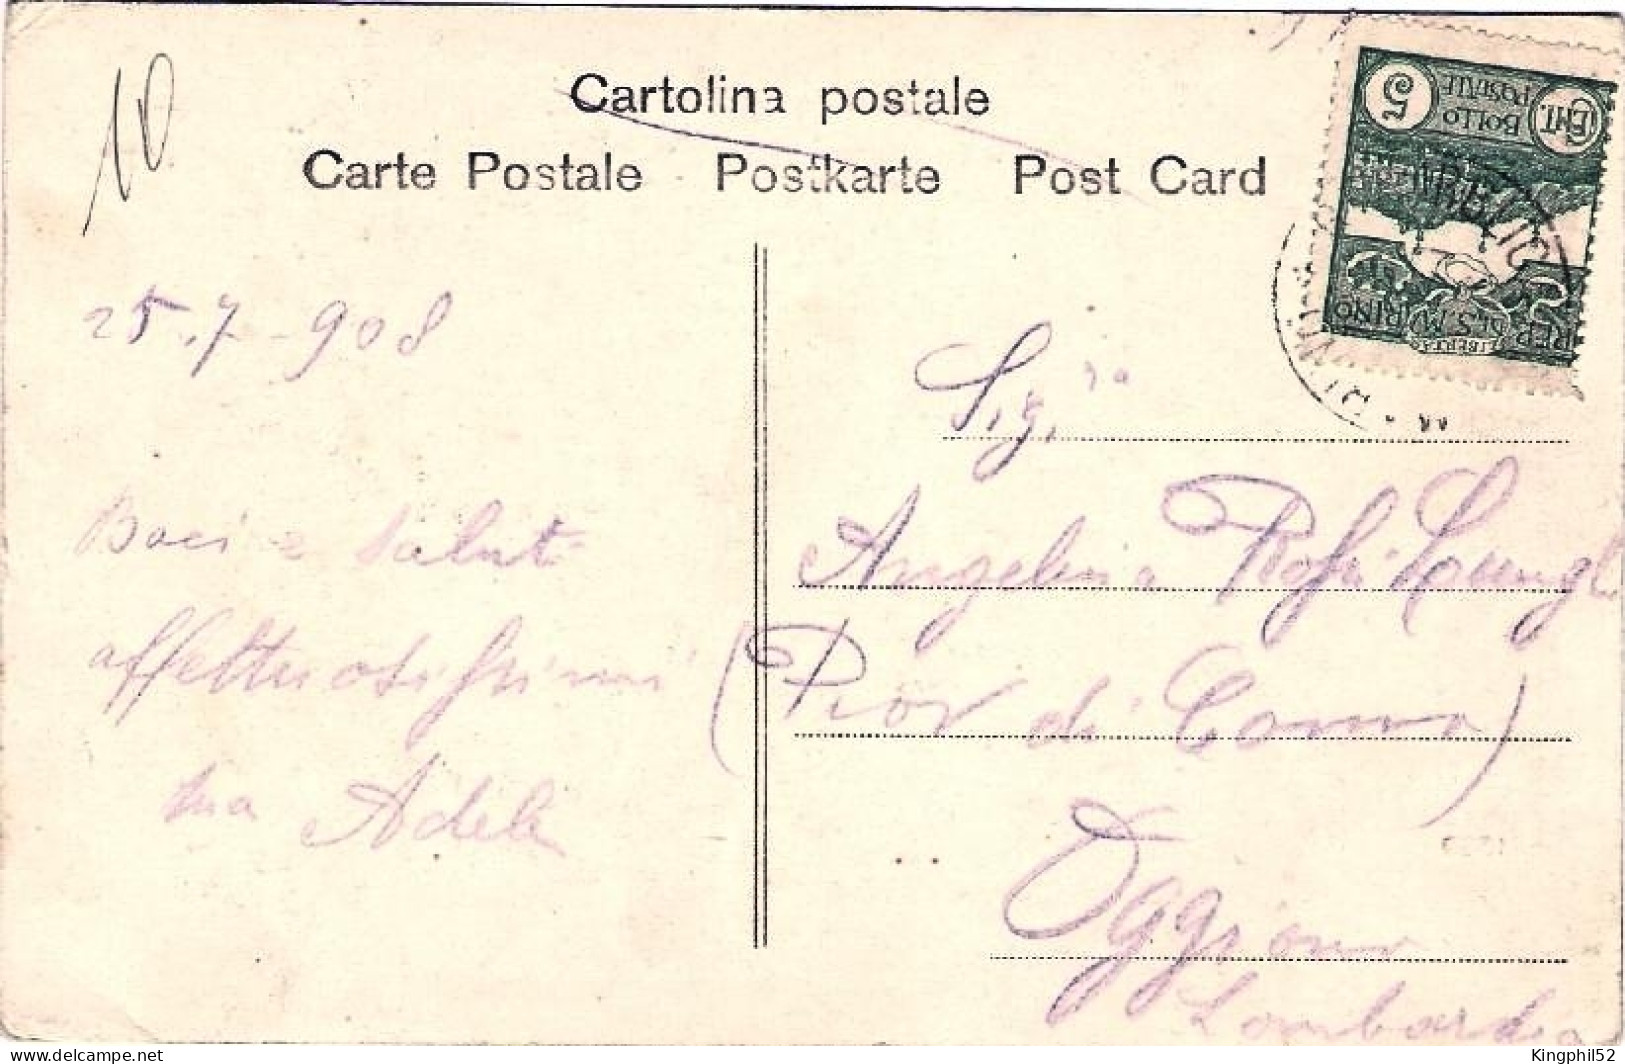 10
Cartolina postale
Carte Postale Postkarte Post Card
CENT. BOLLO POSTALE 5
REP. DI S. MARINO
LIBERTAS
25.7-908
Sig.ra
Baci e saluti
Angelina
affettuosissimi
(Prov di Como)
tua Adele
Oggiono
Lombardia
Kingphil52